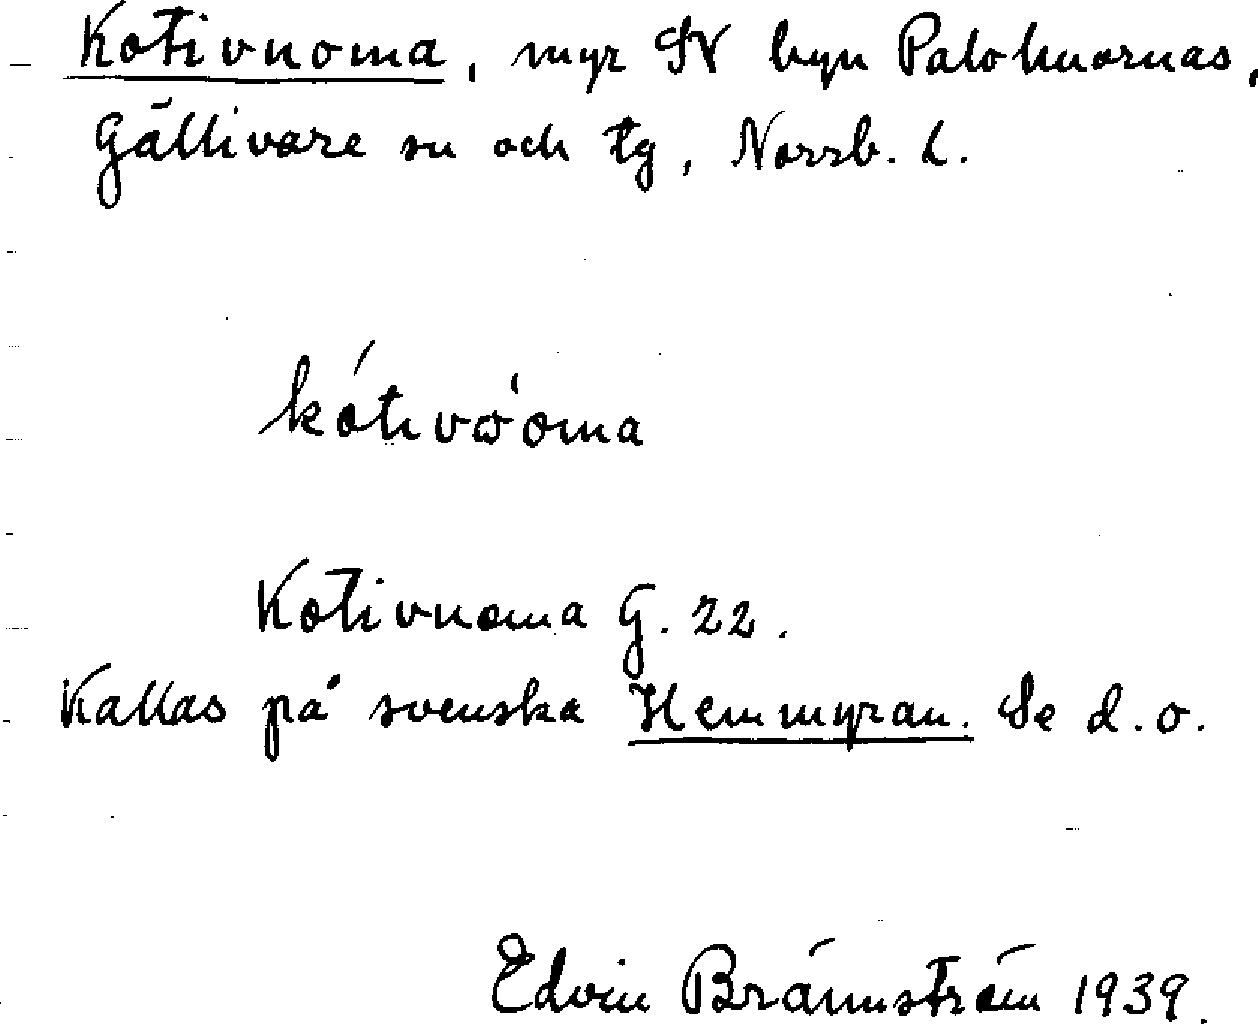 Kotivuoma, myr SV byn Palohuornas,
Gällivare sn och tg, Norrb. L.
kótivὼoma
Kotivuoma G. 22.
Kallas på svenska Hemmyran. Se d.o.
Edvin Brännström 1939.